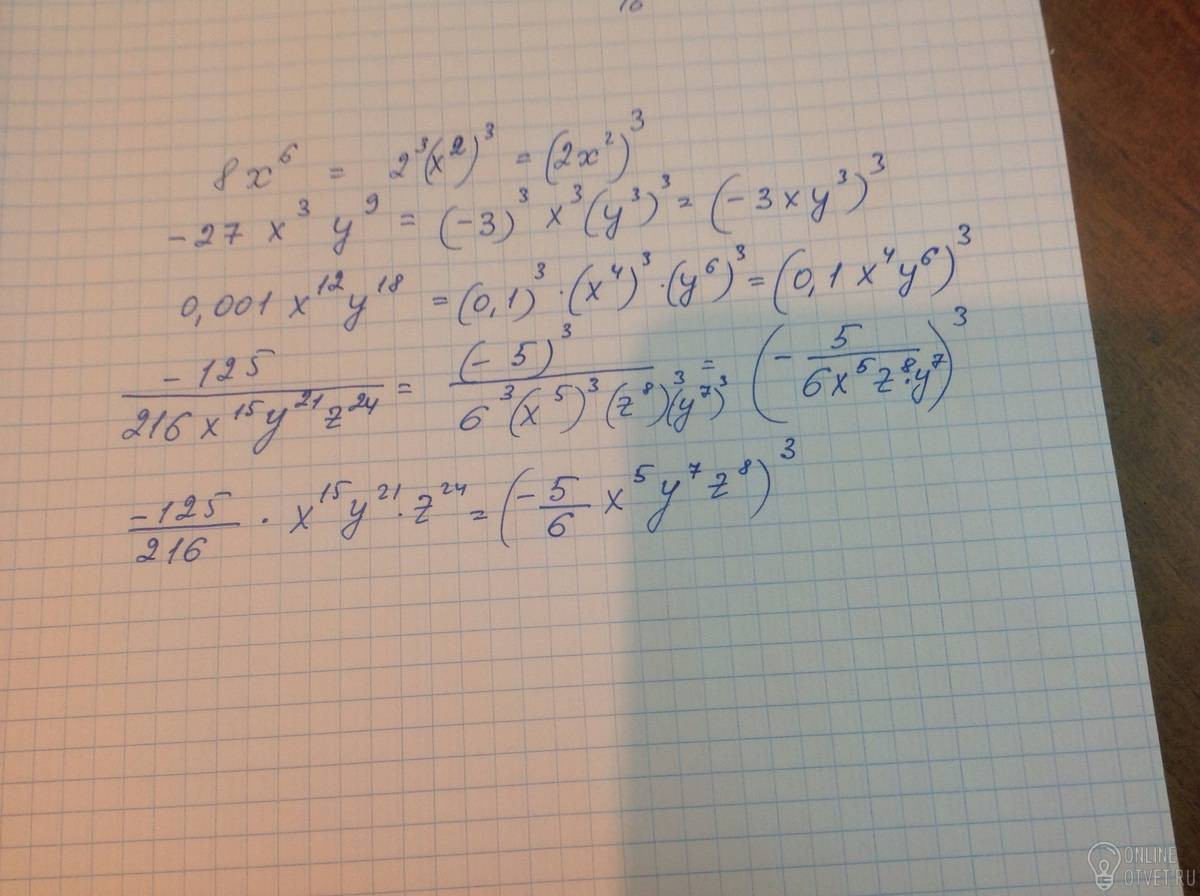 8x⁶ = 2³(x²)³ = (2x²)³
-27 x³ y⁹ = (-3)³ x³ (y³)³ = (-3xy³)³
0,001 x¹²y¹⁸ = (0,1)³ · (x⁴)³ · (y⁶)³ = (0,1 x⁴y⁶)³
-125 / 216 x¹⁵y²¹z²⁴ = (-5)³ / 6³(x⁵)³(z⁸)³(y⁷)³ = (- 5 / 6x⁵z⁸·y⁷)³
-125 / 216 · x¹⁵y²¹·z²⁴ = (-5/6 x⁵y⁷z⁸)³
ONLINE
OTVET.RU